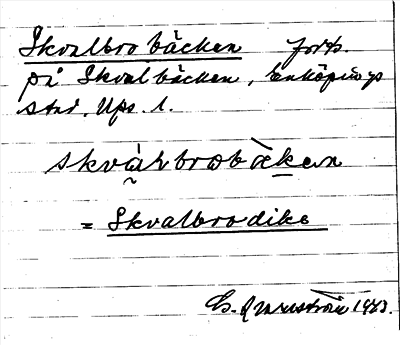 Skvalbrobäcken forts.
på Skvalbäcken, Enköpings
stad. Ups. l.
skvàlbrobä̀ken
= Skvalbrodike
1943.